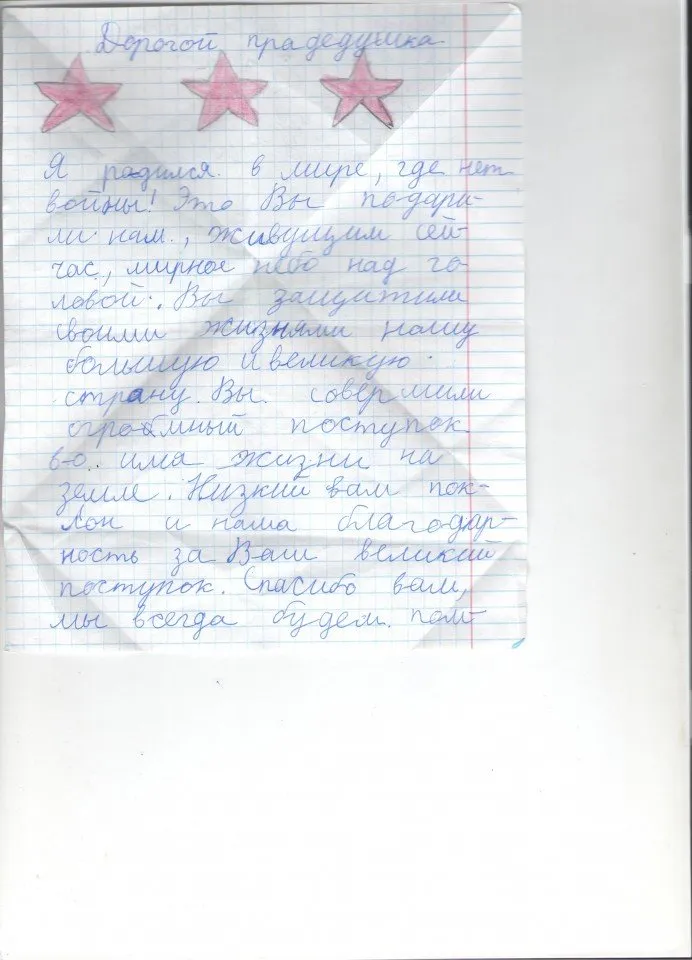 Дорогой прадедушка
Я родился в мире, где нет
войны! Это Вы подари-
ли нам, живущим сей-
час, мирное небо над го-
ловой. Вы защитили
своими жизнями нашу
большую и великую
страну. Вы совершили
огромный поступок
во имя жизни на
земле. Низкий вам пок-
лон и наша благодар-
ность за Ваш великий
поступок. Спасибо вам,
мы всегда будем пом-